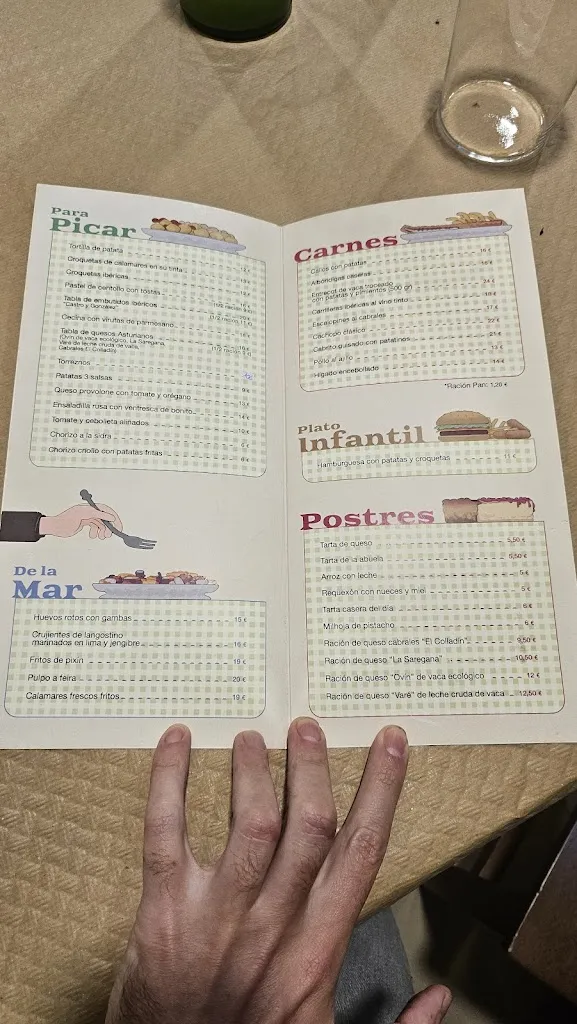 Para
Picar
Tortilla de patata
Croquetas de calamares en su tinta 12 €
Croquetas ibéricas
Pastel de centollo con tostas
Tabla de embutidos ibéricos
"Castro y González"
Cecina con virutas de parmesano
Tabla de quesos Asturianos
(Ovín de vaca ecológico, La Saregana,
Varé de leche cruda de vaca,
Cabrales El Colladín)
Torreznos
Patatas 3 salsas 9 €
Queso provolone con tomate y orégano
Ensaladilla rusa con ventresca de bonito
Tomate y cebolleta aliñados
Chorizo a la sidra 6 €
Chorizo criollo con patatas fritas
De la
Mar
Huevos rotos con gambas 15 €
Crujientes de langostino
marinados en lima y jengibre 16 €
Fritos de pixín 19 €
Pulpo a feira 20 €
Calamares frescos fritos 19 €
Carnes
Callos con patatas 16 €
Albóndigas caseras
Entrecot de vaca troceado
con patatas y pimientos (500 gr) 24 €
Carrilleras ibéricas al vino tinto
Escalopines al cabrales
Cachopo clásico
Cabrito guisado con patatinos
Pollo al ajillo
Hígado encebollado 14 €
*Ración Pan: 1,20 €
Plato
Infantil
Hamburguesa con patatas y croquetas 11 €
Postres
Tarta de queso 5,50 €
Tarta de la abuela 5,50 €
Arroz con leche 5 €
Requexón con nueces y miel 5 €
Tarta casera del día 6 €
Milhoja de pistacho 6 €
Ración de queso cabrales "El Colladín" 9,50 €
Ración de queso "La Saregana" 10,50 €
Ración de queso "Ovín" de vaca ecológico 12 €
Ración de queso "Varé" de leche cruda de vaca 12,50 €